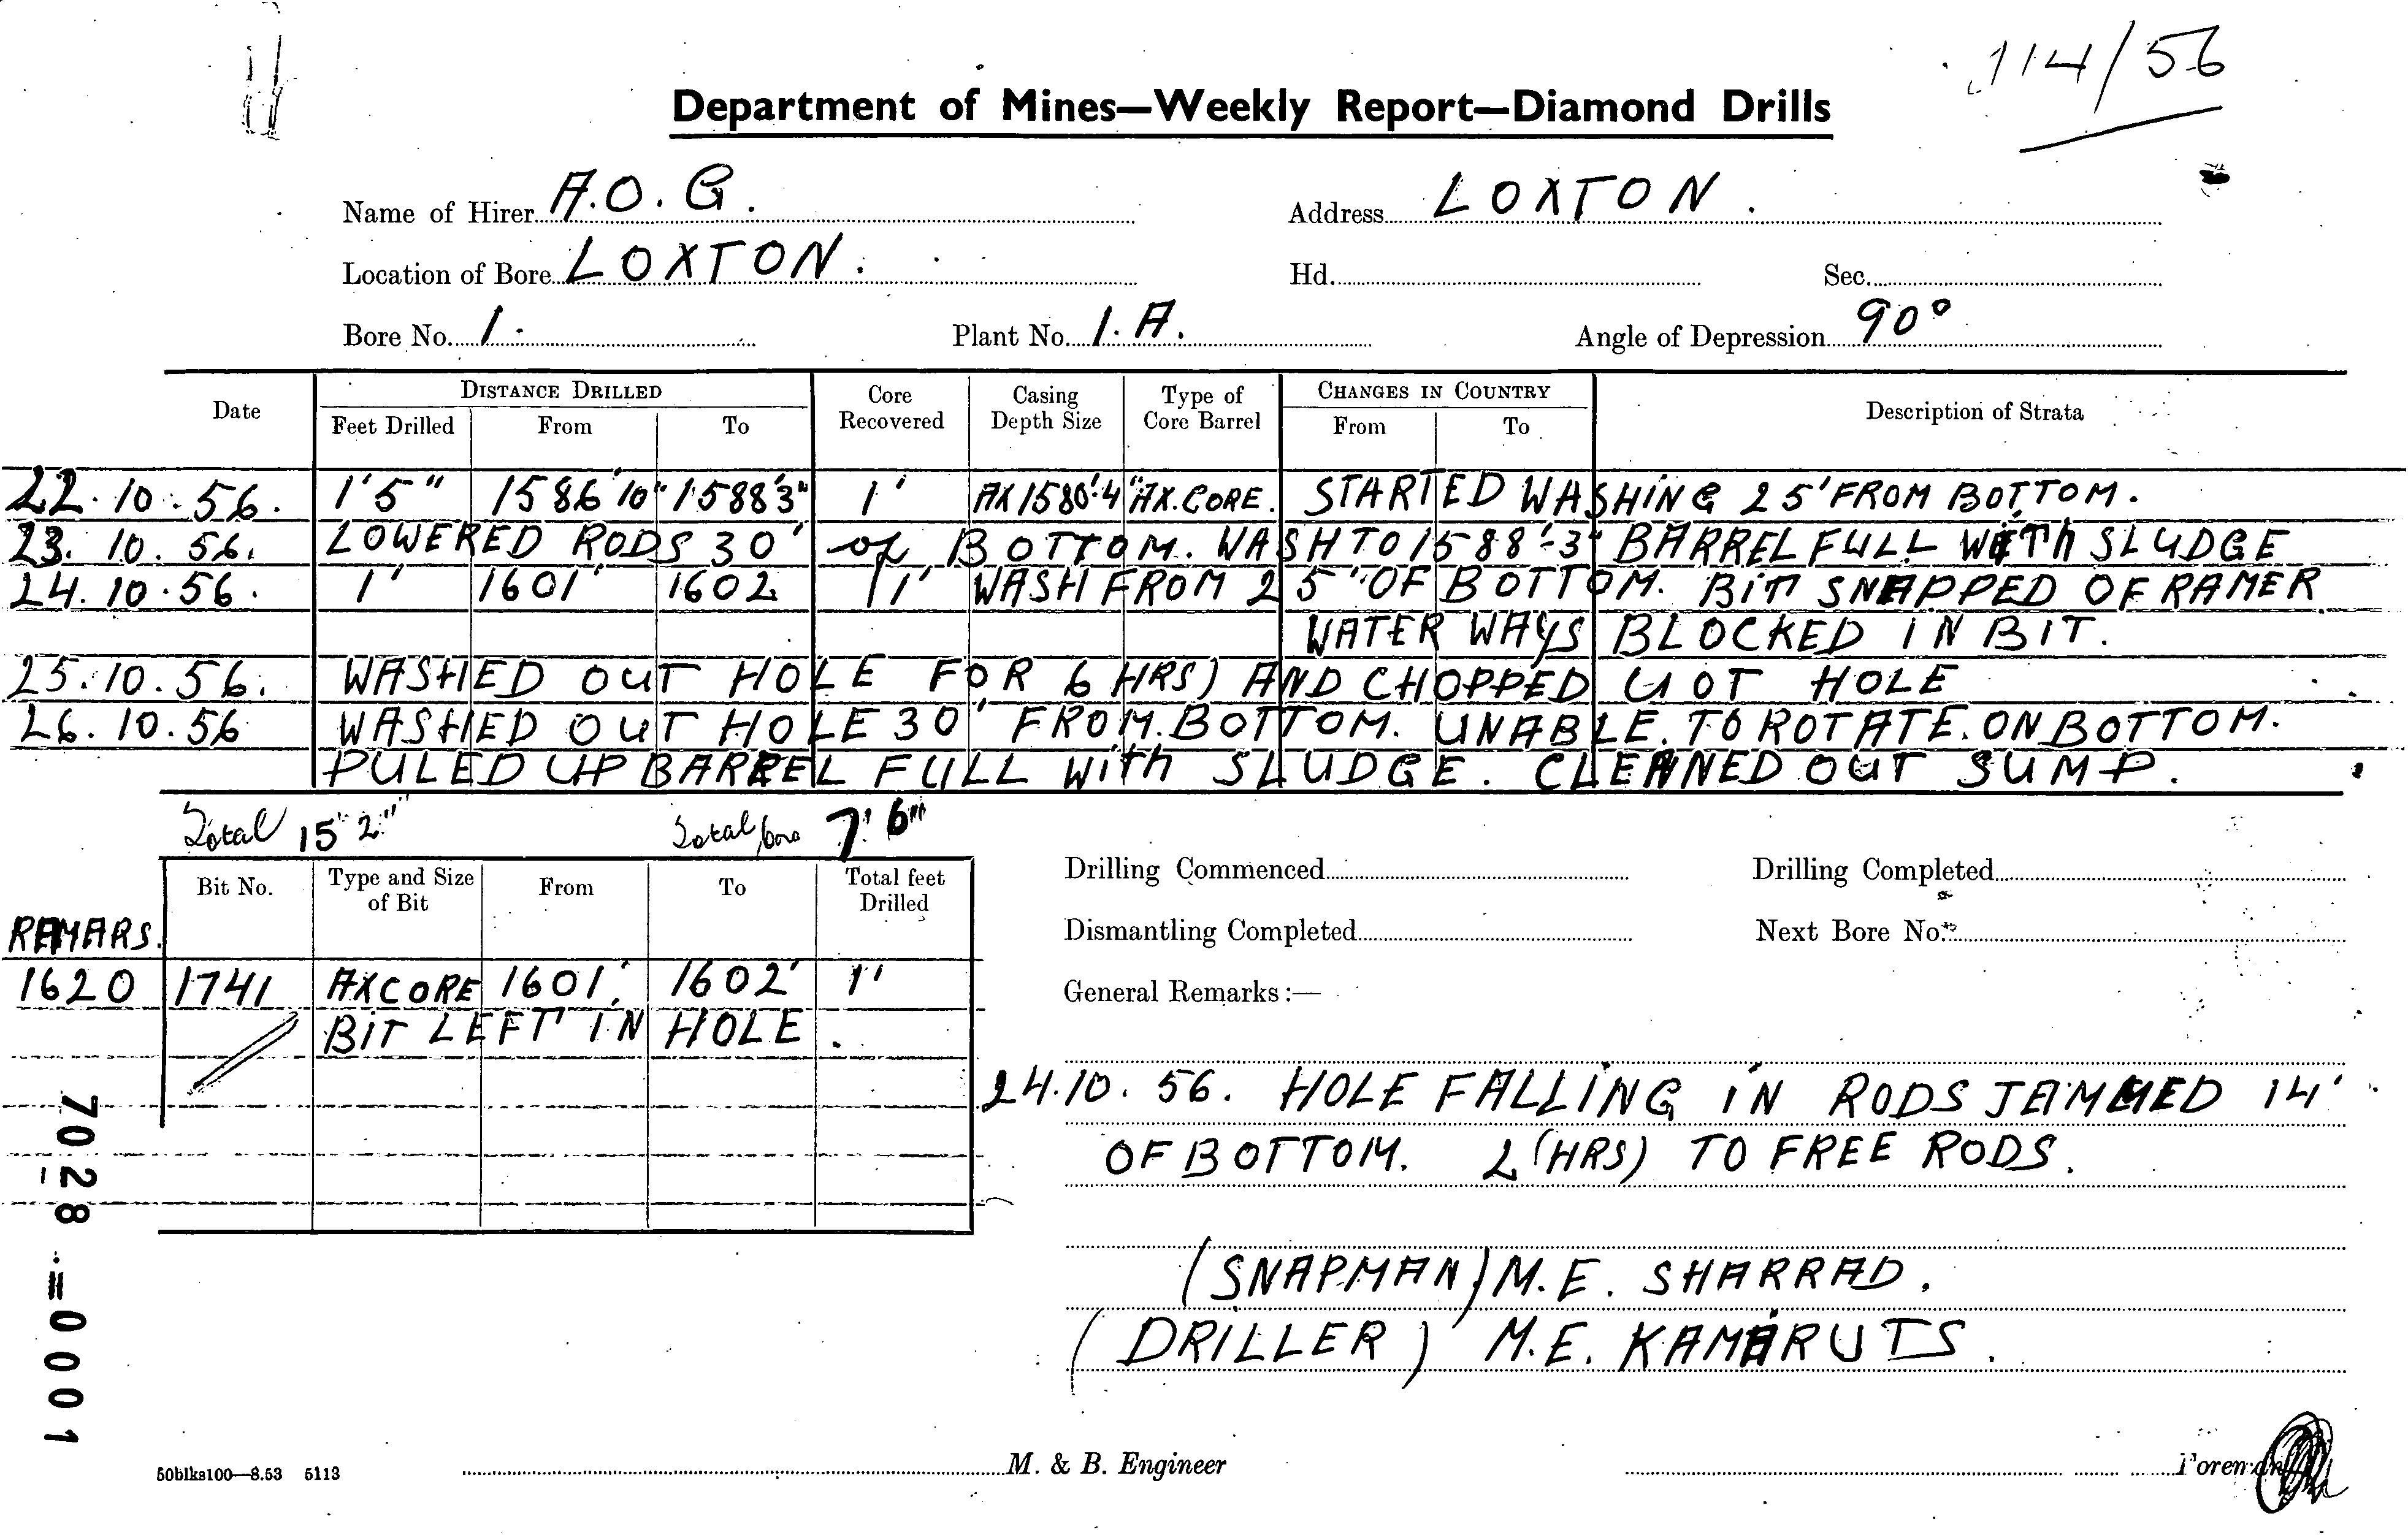 114/56
Department of Mines—Weekly Report—Diamond Drills
Name of Hirer A.O.G. Address LOXTON.
Location of Bore LOXTON. Hd. Sec.
Bore No. 1. Plant No. 1.A. Angle of Depression 90°
Date DISTANCE DRILLED Core Recovered Casing Depth Size Type of Core Barrel CHANGES IN COUNTRY Description of Strata
Feet Drilled From To From To
22.10.56. 1'5" 1586'10" 1588'3" 1' AX1580'-4" AX.CORE. STARTED WASHING 25' FROM BOTTOM.
23.10.56. LOWERED RODS 30' of BOTTOM. WASH TO 1588'-3" BARREL FULL WITH SLUDGE
24.10.56. 1' 1601' 1602 1' WASH FROM 25" OF BOTTOM. BIT SNAPPED OF RAMER
WATER WAYS BLOCKED IN BIT.
25.10.56. WASHED OUT HOLE FOR 6 HRS) AND CHOPPED UOT HOLE
26.10.56 WASHED OUT HOLE 30' FROM. BOTTOM. UNABLE. TO ROTATE. ON BOTTOM.
PULED UP BARREL FULL With SLUDGE. CLEANED OUT SUMP.
Total 15' 2" Total 7' 6"
Bit No. Type and Size of Bit From To Total feet Drilled
REMARS.
1620 1741 AXCORE 1601' 1602' 1'
BIT LEFT IN HOLE.
Drilling Commenced Drilling Completed
Dismantling Completed Next Bore No.
General Remarks :—
24.10.56. HOLE FALLING IN RODS JAMMED 14'
OF BOTTOM. 2 (HRS) TO FREE RODS.
(SNAPMAN) M.E. SHARRAD.
(DRILLER) M.E. KAMARUTS.
7028-0001
50blks100—8.53 5113 M. & B. Engineer Foreman